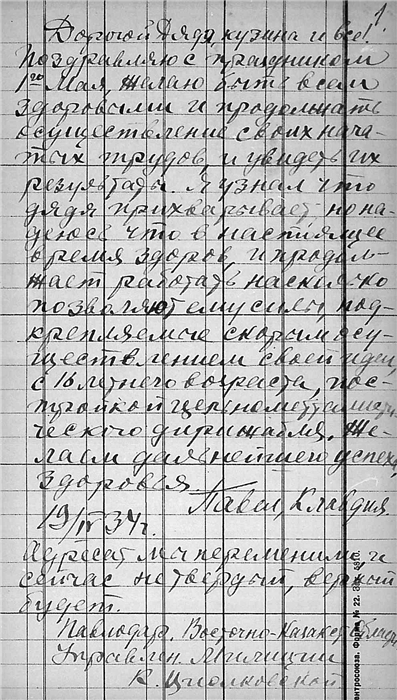 1.
Дорогой Дядя, кузина и все!
поздравляю с праздником
1го Мая, желаю быть всем
здоровыми и продолжать
осуществление своих нача-
тых трудов, и увидеть их
результаты. Я узнал что
дядя прихварывает, но на-
деюсь что в настоящее
время здоров, и продол-
жает работать насколько
позволяют ему силы под-
крепляемые скорым осу-
ществлением своей идеи,
с 16 летнего возраста, пос-
тройкой цельнометалли-
ческого дирижабля. Же-
лаем дальнейшего успеха,
здоровья.
Павел, Клавдия
19/IV 34 г.
Адресат мы переменили, и
сейчас не твердый, верный
будет.
Павлодар. Восточно-Казакст. области
Управлен. Милиции
К. Циолковской
антросоюза. Форма № 22. Зак. 5810.